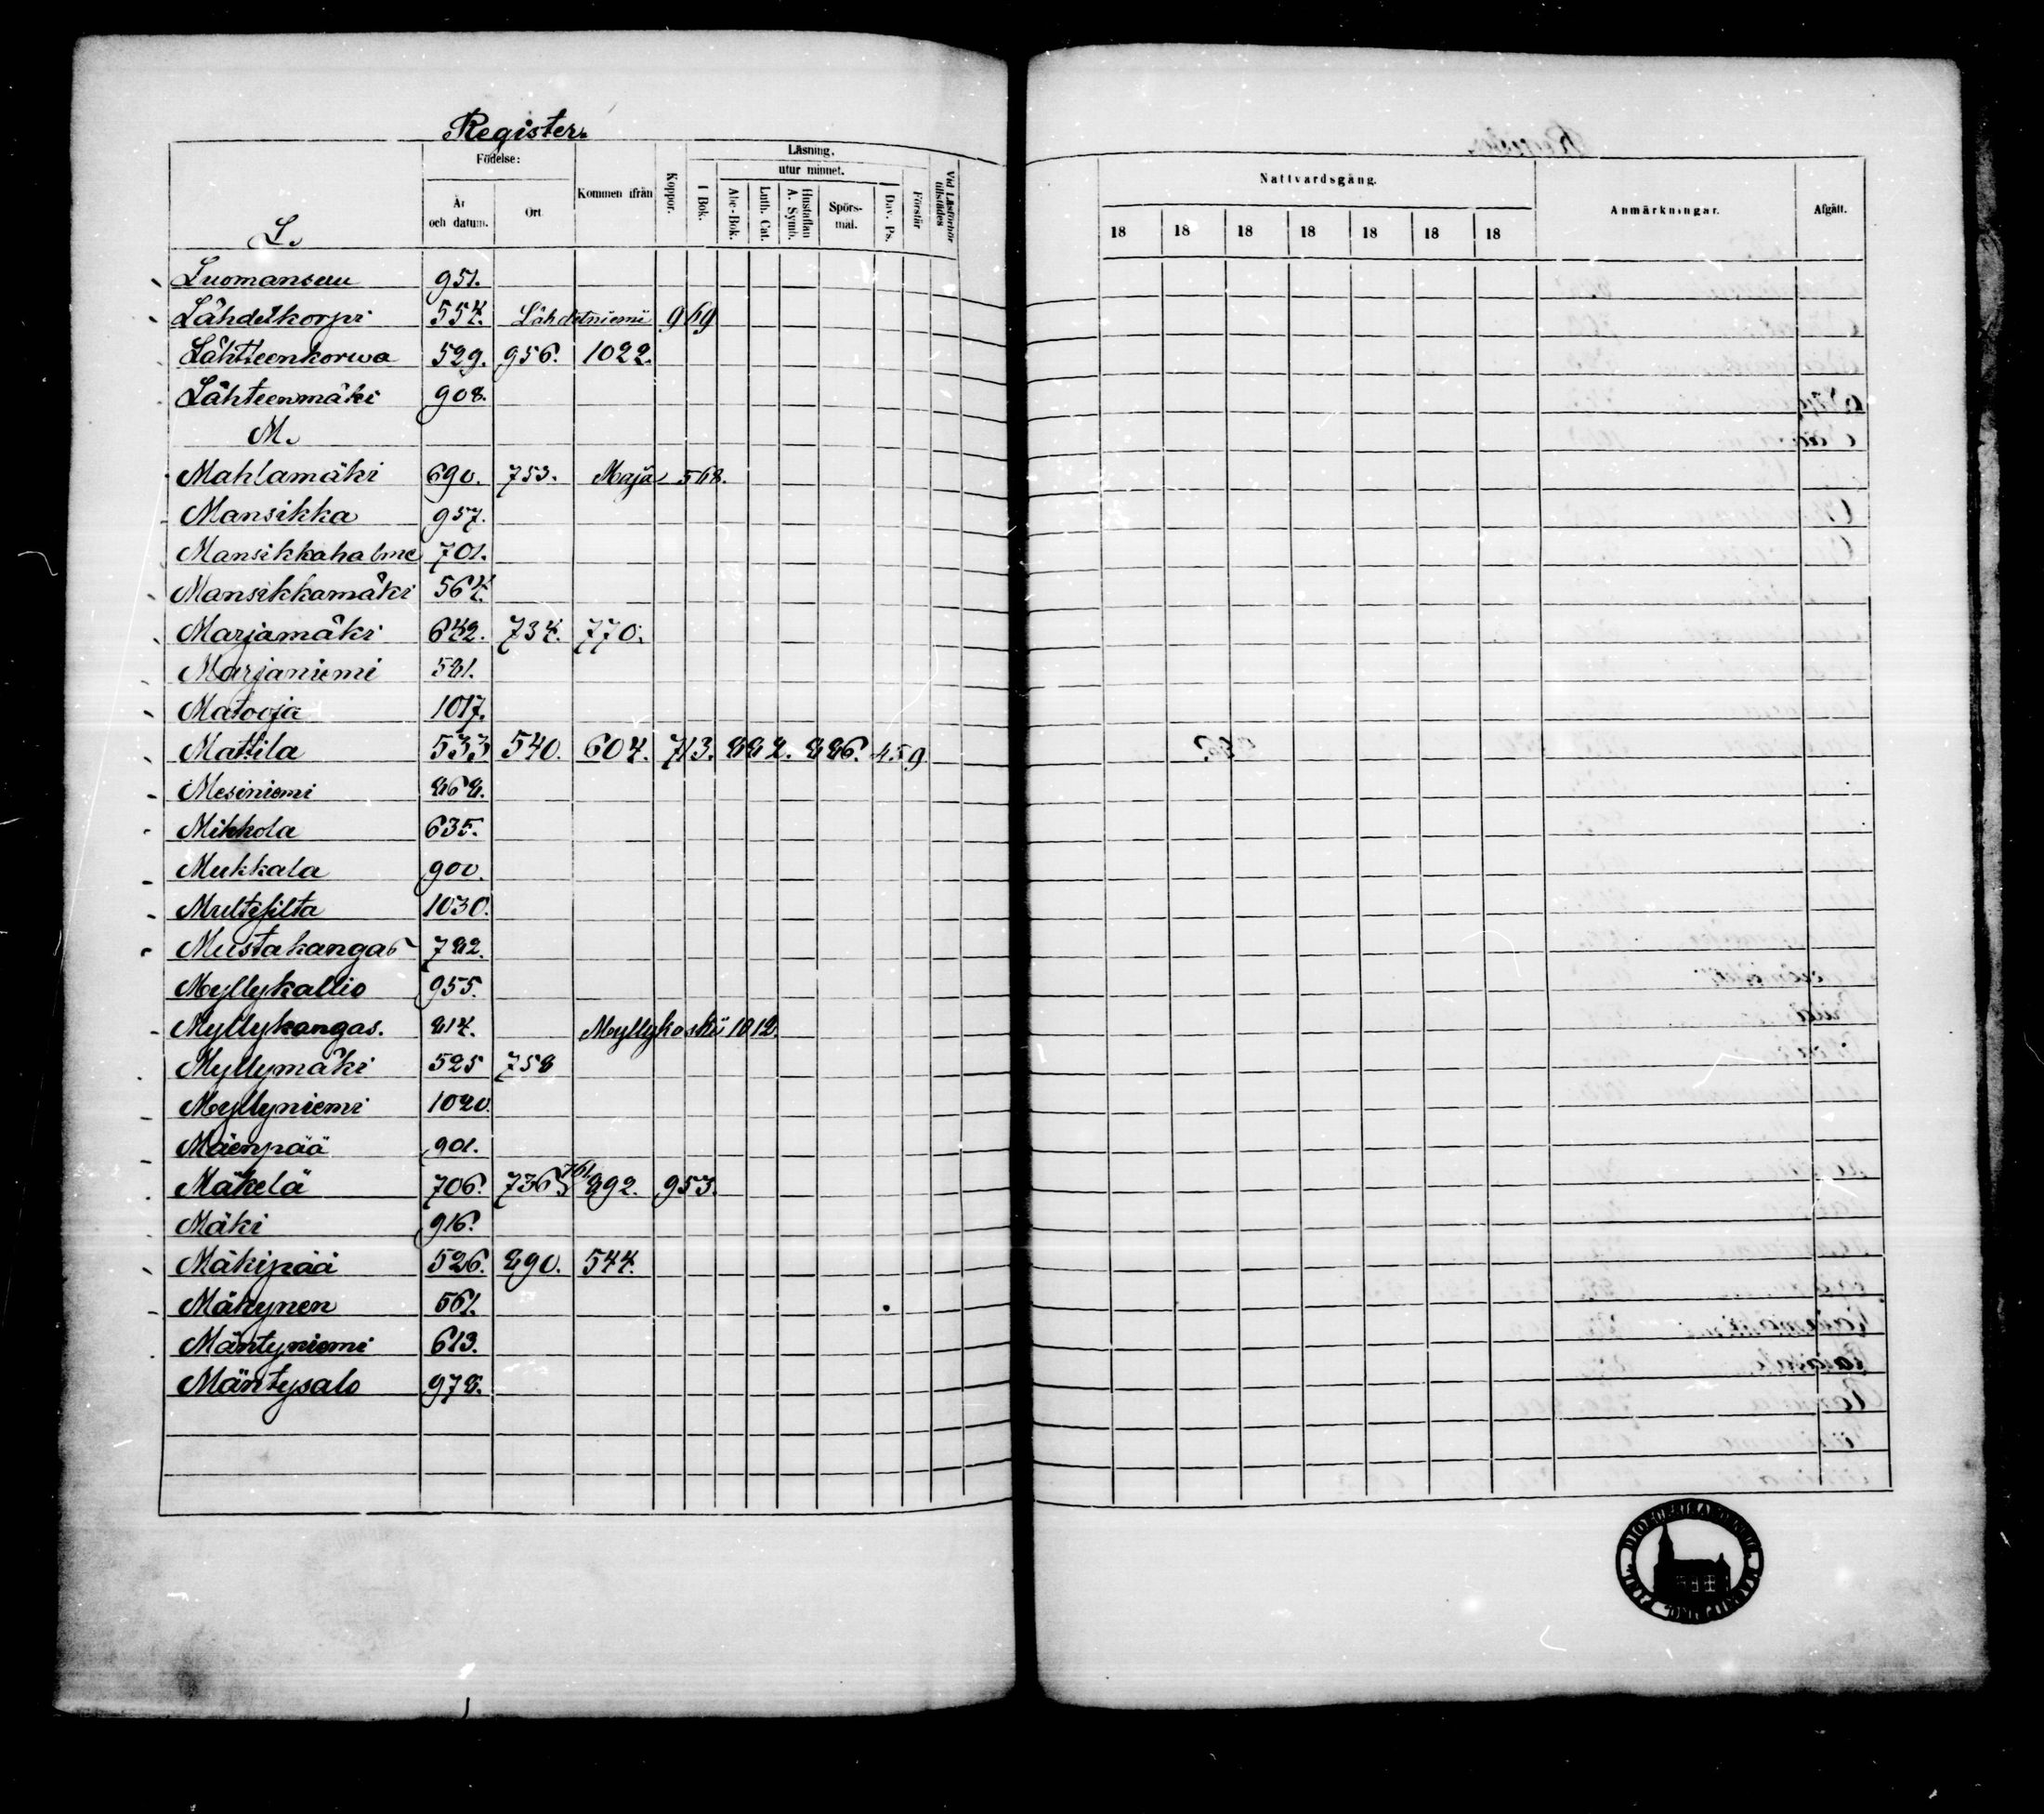 Register.
Födelse:
Läsning,
utur minnet.
År och datum.
Ort
Kommen ifrån
Koppor.
I Bok.
Abc-Bok.
Luth. Cat.
Hustaflan A. Symb.
Spörs-mål.
Dav. Ps.
Förstår
Vid Läsförhör tillstädes
Nattvardsgång.
18 18 18 18 18 18 18
Anmärkningar.
Afgått.
L.
Luomansuu 951.
Lähdekorpi 554. Lähdetniemi 969
Lähteenkorwa 529. 956. 1022.
Lähteenmäki 908.
M.
Mahlamäki 690. 753. Maja 568.
Mansikka 957.
Mansikkahalme 701.
Mansikkamäki 564.
Marjamäki 642. 734. 770.
Marjaniemi 581.
Matooja 1017.
Mattila 533 540. 604. 713. 882. 886. 459
Mesiniemi 868.
Mikkola 635.
Mukkala 900.
Multisilta 1030.
Mustakangas 782.
Myllykallio 955.
Myllykangas. 814. Myllykoski 1012
Myllymäki 525 758
Myllyniemi 1020.
Mäenpää 901.
Mäkelä 706. 736. 761 892. 953.
Mäki 916.
Mäkipää 526. 890. 544.
Mäkynen 561.
Mäntyniemi 613.
Mäntysalo 978.